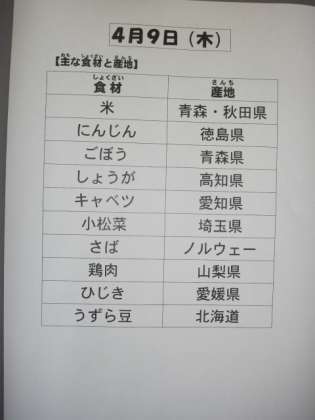 4月9日（木）
【主な食材と産地】
食材 産地
米 青森・秋田県
にんじん 徳島県
ごぼう 青森県
しょうが 高知県
キャベツ 愛知県
小松菜 埼玉県
さば ノルウェー
鶏肉 山梨県
ひじき 愛媛県
うずら豆 北海道